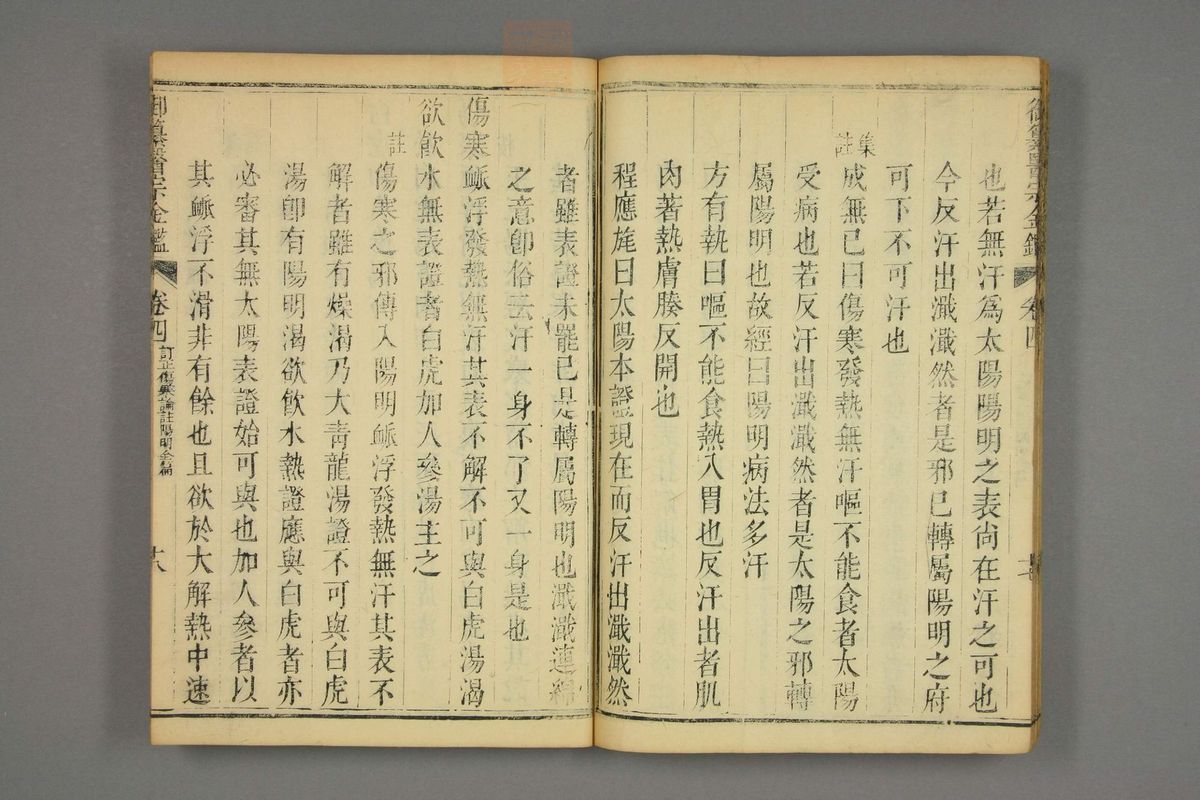 御纂醫宗金鑑 卷四
也若無汗爲太陽陽明之表尙在汗之可也
今反汗出濈濈然者是邪已轉屬陽明之府
可下不可汗也
集註
成無已曰傷寒發熱無汗嘔不能食者太陽
受病也若反汗出濈濈然者是太陽之邪轉
屬陽明也故經曰陽明病法多汗
方有執曰嘔不能食熱入胃也反汗出者肌
肉著熱膚腠反開也
程應旄曰太陽本證現在而反汗出濈濈然
者雖表證未罷已是轉屬陽明也濈濈連綿
之意卽俗云汗一身不了又一身是也
傷寒脈浮發熱無汗其表不解不可與白虎湯渴
欲飮水無表證者白虎加人參湯主之
註
傷寒之邪傳入陽明脈浮發熱無汗其表不
解者雖有燥渴乃大靑龍湯證不可與白虎
湯卽有陽明渴欲飮水熱證應與白虎者亦
必審其無太陽表證始可與也加人參者以
其脈浮不滑非有餘也且欲於大解熱中速
御纂醫宗金鑑 卷四 訂正傷寒論註陽明全篇 十八